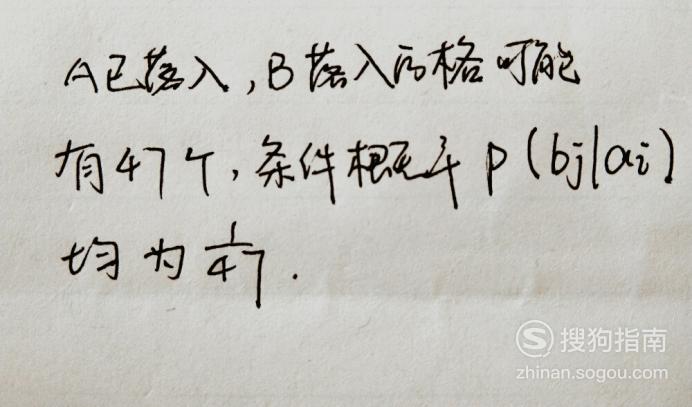 A已落入,B落入的格可能
有47个,条件概率 p(bj|ai)
均为 1/47.
搜狗指南
zhinan.sogou.com